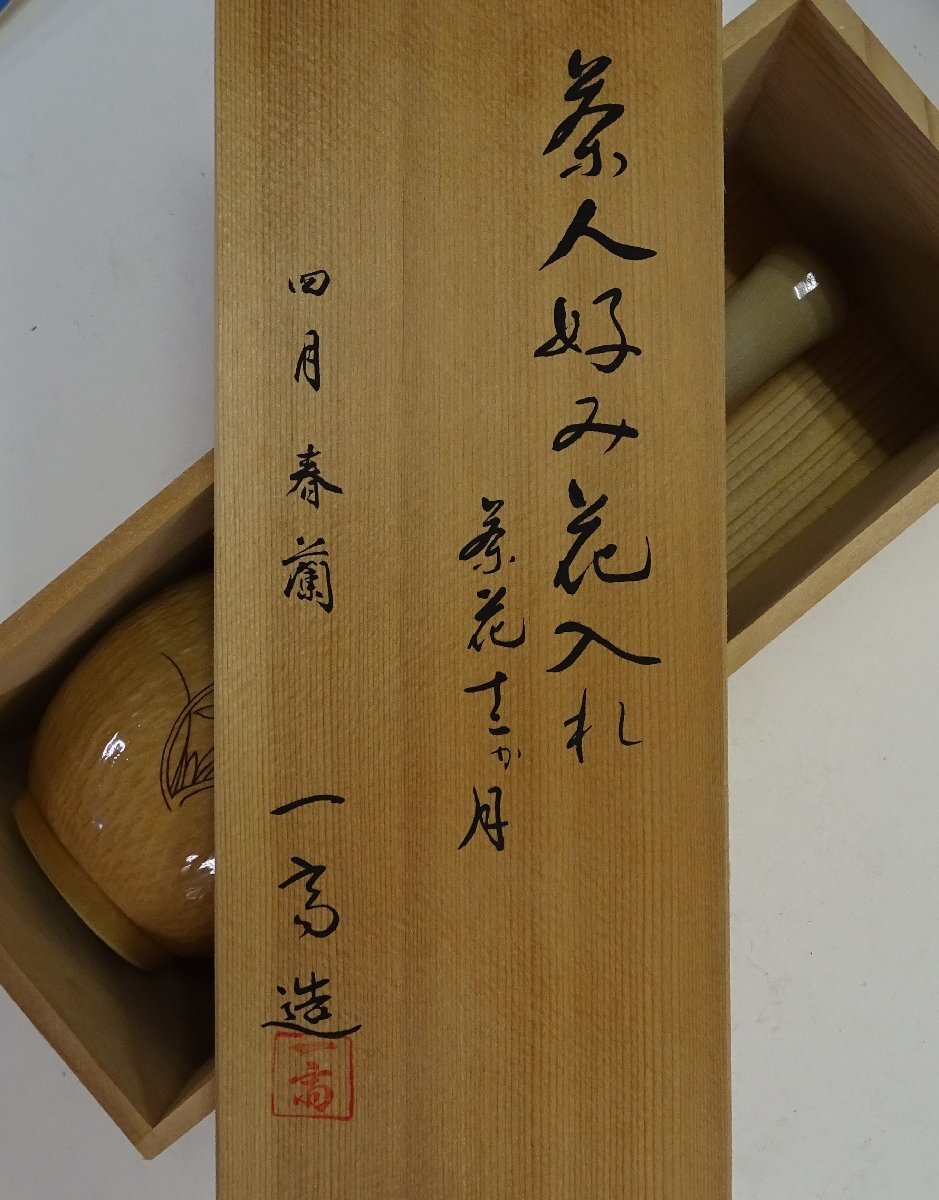 茶人好み花入れ
茶花十二か月
四月 春蘭 一斎造
一斎